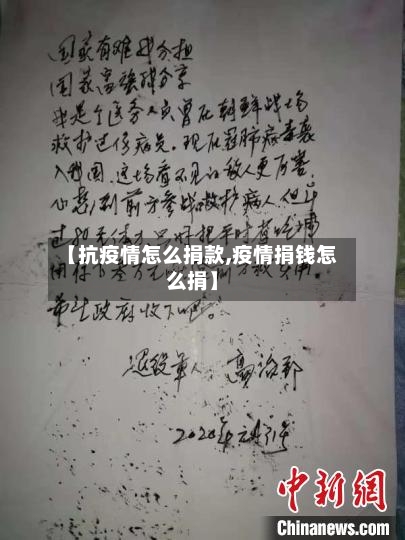 国家有难我分担
国家富强我分享
我是个医务人员曾在朝鲜战场
救护过伤病员。现在冠肺病毒袭
入我国。这场看不见的敌人更厉害
心想到前方参战救护病人但
过80
【抗疫情怎么捐款,疫情捐钱怎
么捐】
希望政府收下吧。
退役军人 高治邦
2020年元月31号
中新网
Chinanews.com